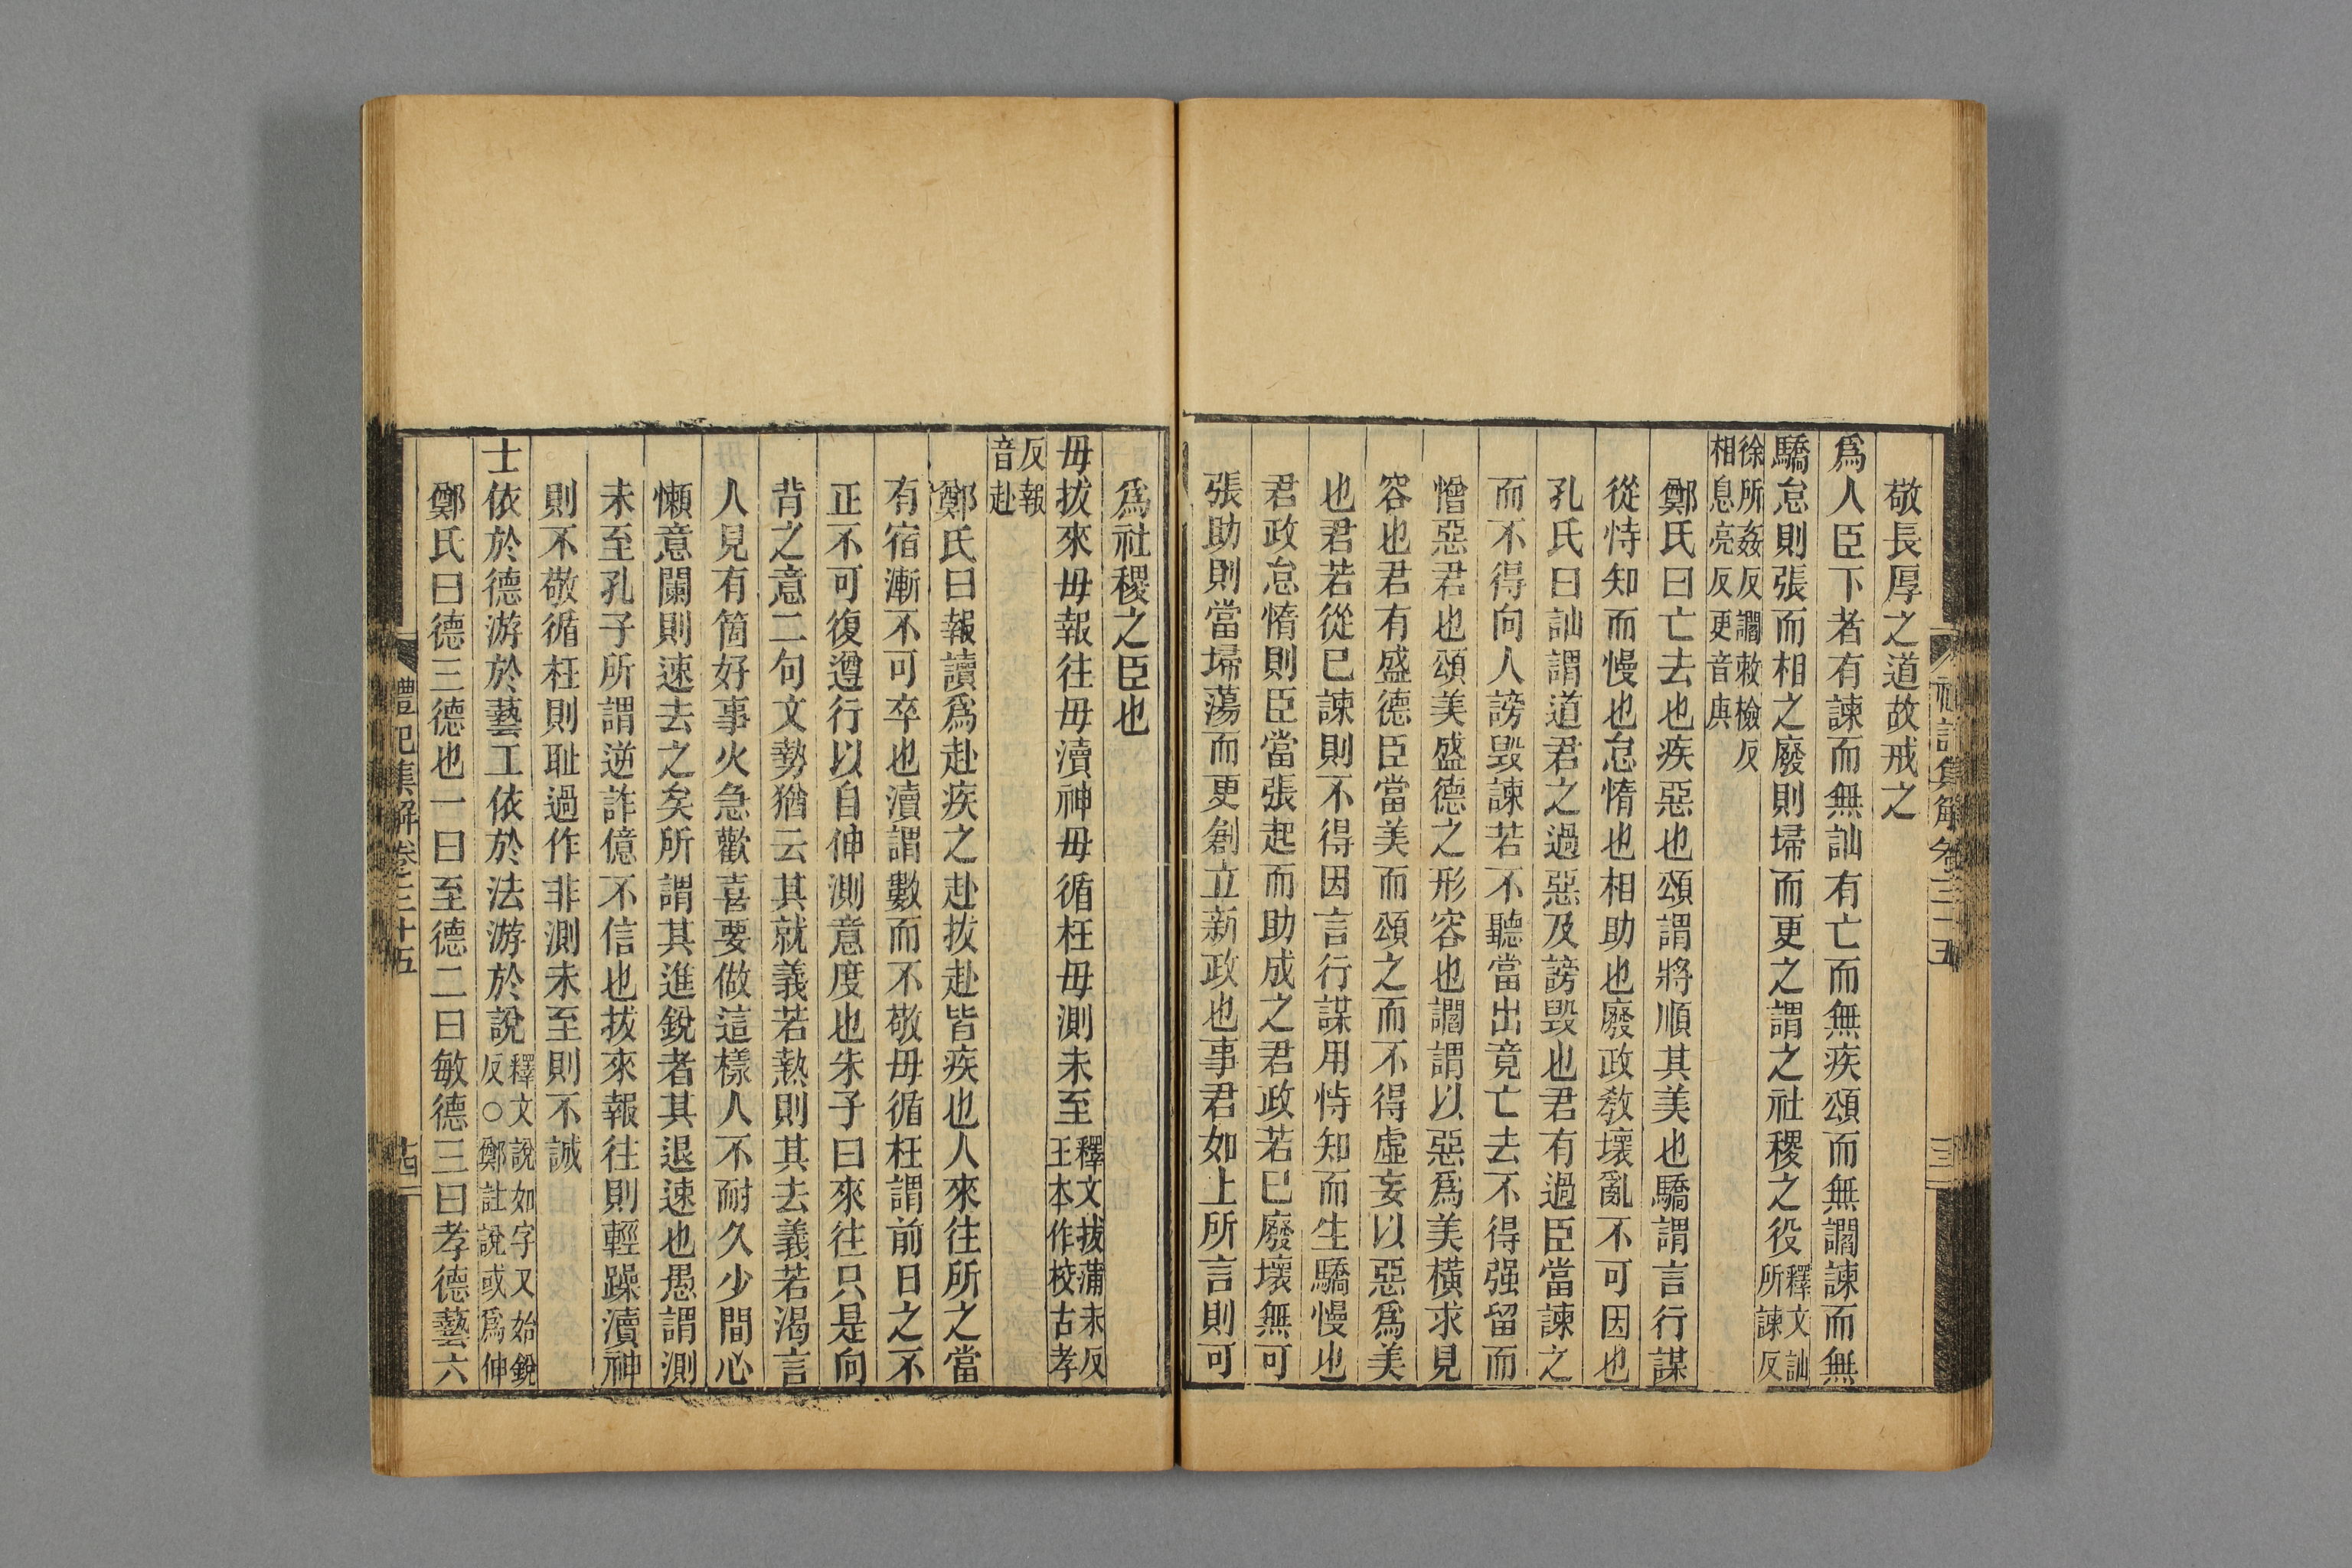 敬長厚之道故戒之
爲人臣下者有諫而無訕有亡而無疾頌而無讇諫而無
驕怠則張而相之廢則埽而更之謂之社稷之役釋文訕
所諫反
徐所姦反讇敕檢反
相息亮反更音庚
鄭氏曰亡去也疾惡也頌謂將順其美也驕謂言行謀
從恃知而慢也怠惰也相助也廢政敎壞亂不可因也
孔氏曰訕謂道君之過惡及謗毁也君有過臣當諫之
而不得向人謗毁諫若不聽當出竟亡去不得强留而
憎惡君也頌美盛德之形容也讇謂以惡爲美橫求見
容也君有盛德臣當美而頌之而不得虛妄以惡爲美
也君若從已諫則不得因言行謀用恃知而生驕慢也
君政怠惰則臣當張起而助成之君政若已廢壞無可
張助則當埽蕩而更創立新政也事君如上所言則可
禮記集解卷三十五
爲社稷之臣也
毋拔來毋報往毋瀆神毋循枉毋測未至釋文拔蒲末反
王本作校古孝
反報
音赴
鄭氏曰報讀爲赴疾之赴拔赴皆疾也人來往所之當
有宿漸不可卒也瀆謂數而不敬毋循枉謂前日之不
正不可復遵行以自伸測意度也朱子曰來往只是向
背之意二句文勢猶云其就義若熱則其去義若渴言
人見有箇好事火急歡喜要做這樣人不耐久少間心
懶意闌則速去之矣所謂其進銳者其退速也愚謂測
未至孔子所謂逆詐億不信也拔來報往則輕躁瀆神
則不敬循枉則耻過作非測未至則不誠
士依於德游於藝工依於法游於說釋文說如字又始銳
反○鄭註說或爲伸
鄭氏曰德三德也一曰至德二曰敏德三曰孝德藝六
禮記集解卷三十五
十四